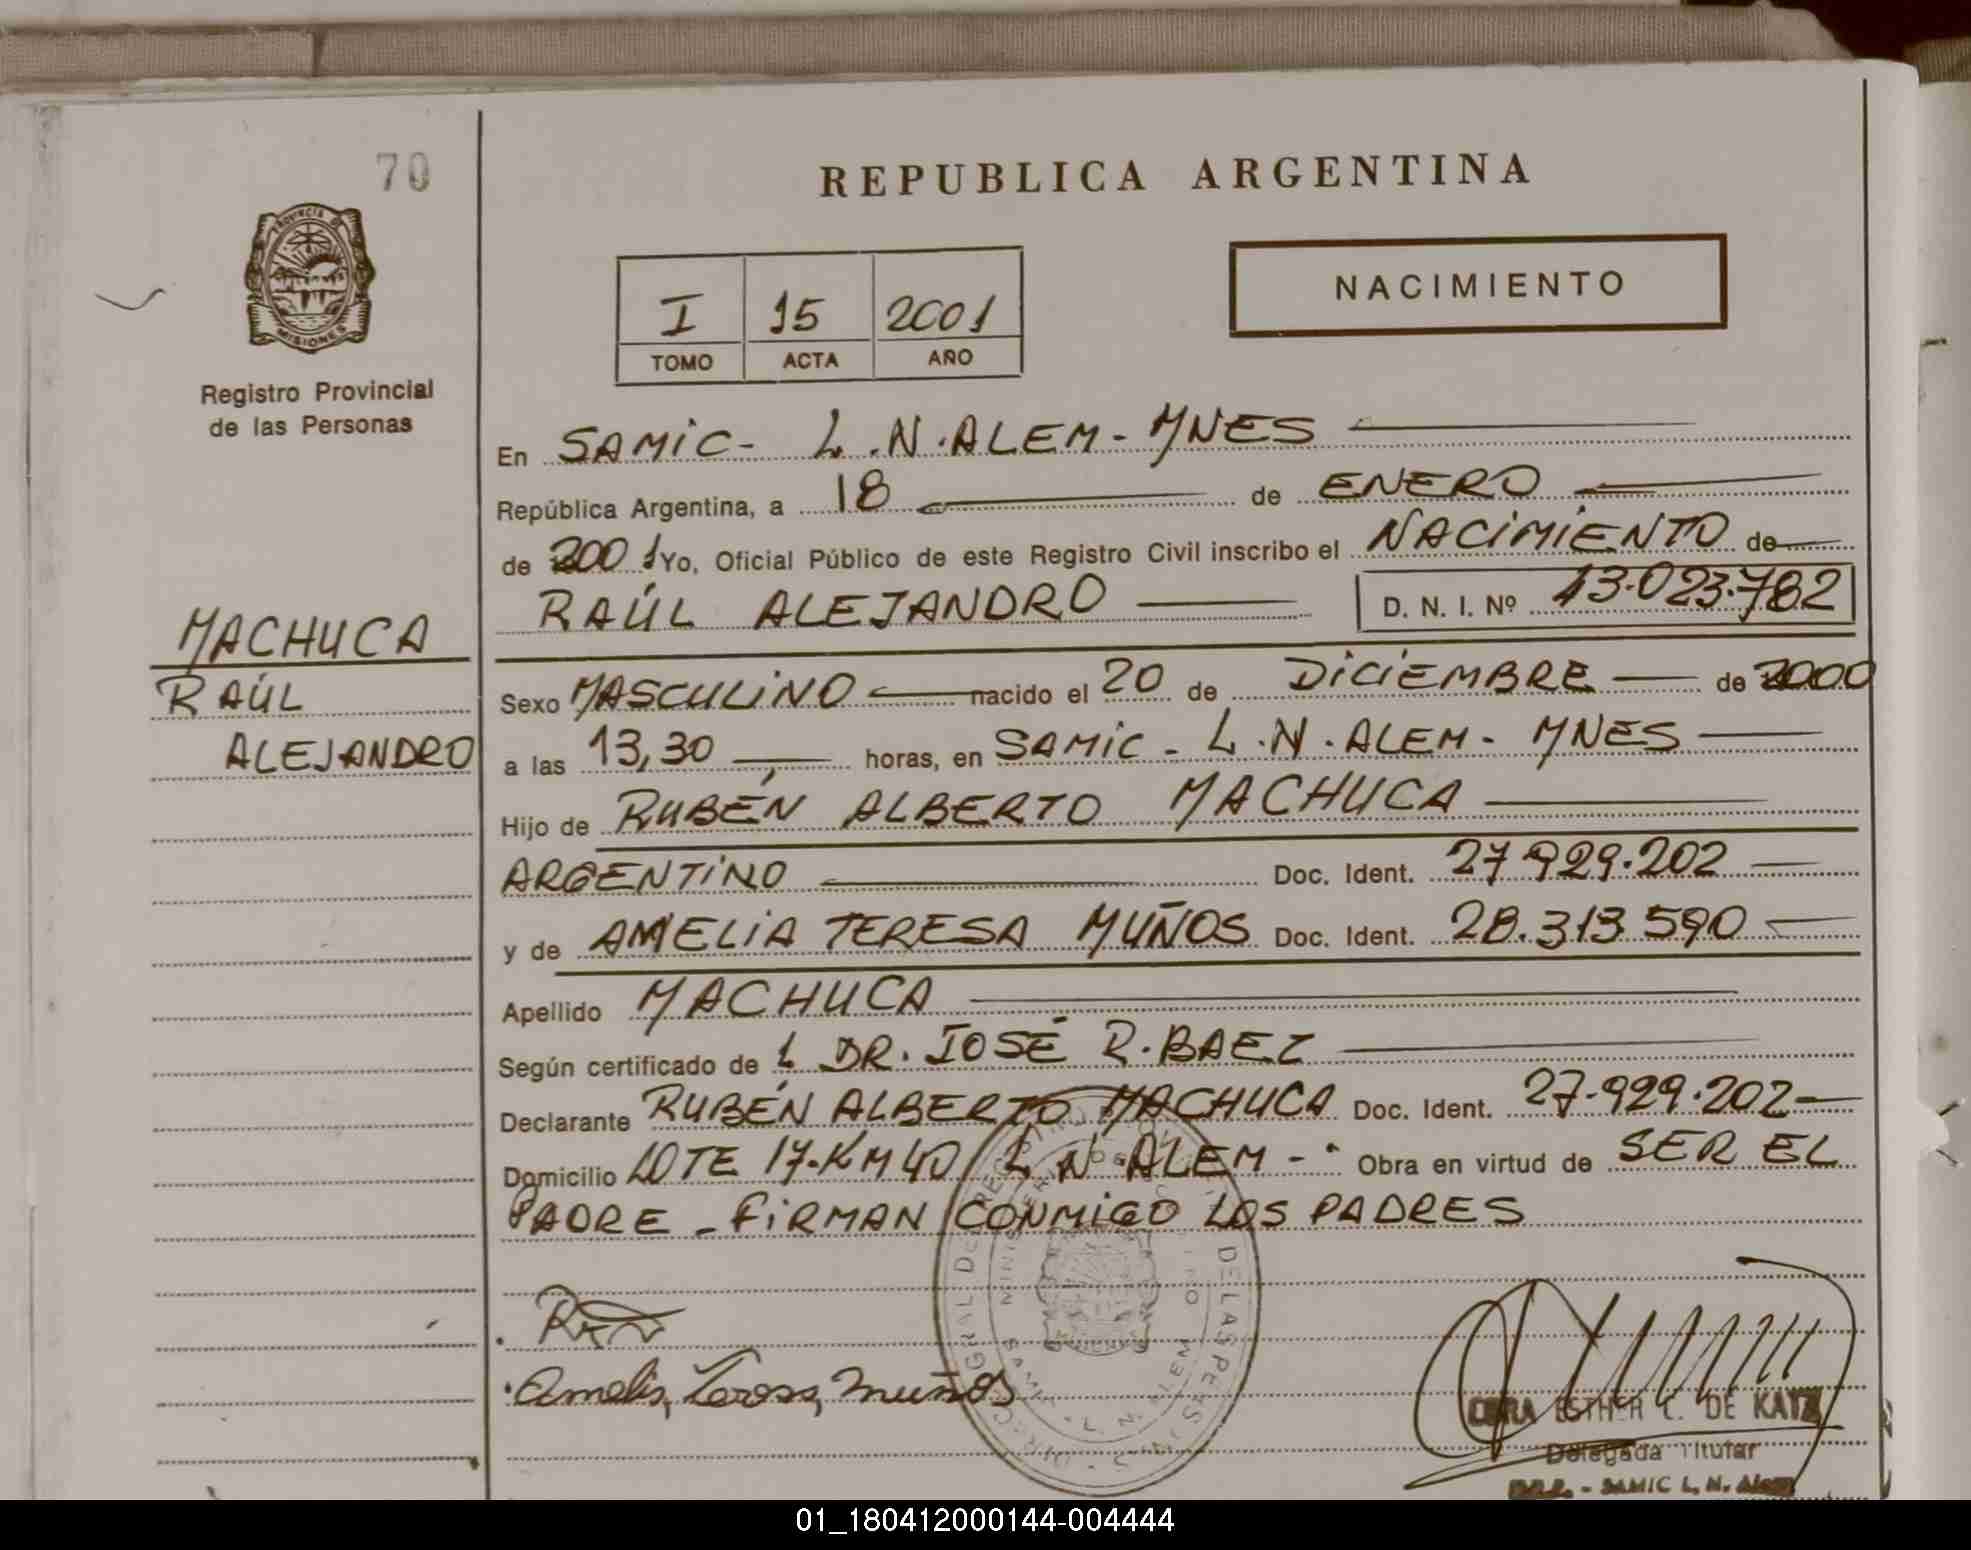 70
PROVINCIA DE
MISIONES
Registro Provincial
de las Personas
MACHUCA
RAÚL
ALEJANDRO
REPUBLICA ARGENTINA
I 15 2001
TOMO ACTA AÑO
NACIMIENTO
En SAMIC- L.N.ALEM-MNES
República Argentina, a 18 de ENERO
de 2001 Yo, Oficial Público de este Registro Civil inscribo el NACIMIENTO de
RAÚL ALEJANDRO D. N. I. Nº 43.023.782
Sexo MASCULINO nacido el 20 de DICIEMBRE de 2000
a las 13,30 horas, en SAMIC - L.N.ALEM- MNES
Hijo de RUBÉN ALBERTO MACHUCA
ARGENTINO Doc. Ident. 27.929.202
y de AMELIA TERESA MUÑOS Doc. Ident. 28.313.590
Apellido MACHUCA
Según certificado de L DR. JOSÉ R. BAEZ
Declarante RUBÉN ALBERTO MACHUCA Doc. Ident. 27.929.202
Domicilio LOTE 17-KM40 L N ALEM - Obra en virtud de SER EL
PADRE - FIRMAN CONMIGO LOS PADRES
Amelia Teresa Muños
ESTHER C. DE KATZ
Delegada Titular
SAMIC L. N. Alem
01_180412000144-004444